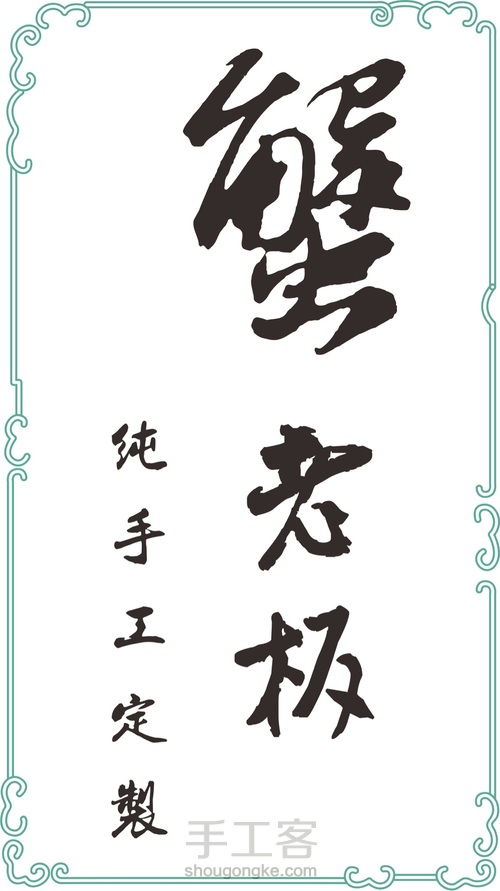 蟹老板
纯手工定製
手工客
shougongke.com